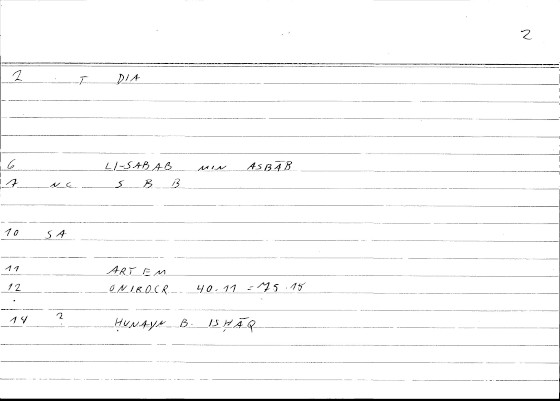 2
2 T DIA
6 LI-SABAB MIN ASBĀB
7 NC S B B
10 SA
11 ARTEM
12 ONIROCR 40.11 = 75.15
14 ? ḤUNAYN B. ISḤĀQ